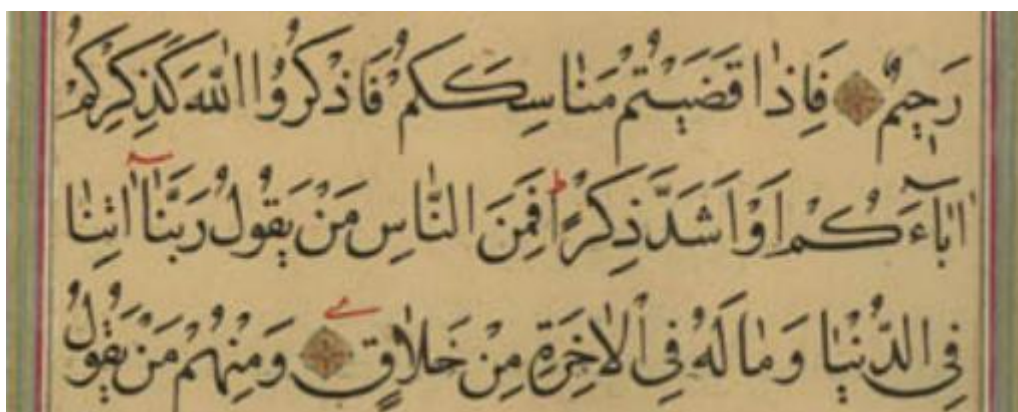 رَحِيمٌ فَاِذَا قَضَيْتُمْ مَنَاسِكَكُمْ فَاذْكُرُوا اللّٰهَ كَذِكْرِكُمْ
اٰبَاۤءَكُمْ اَوْ اَشَدَّ ذِكْرًا ط فَمِنَ النَّاسِ مَنْ يَقُولُ رَبَّنَاۤ اٰتِنَا
فِى الدُّنْيَا وَمَا لَهُ فِى الْاٰخِرَةِ مِنْ خَلَاقٍ وَمِنْهُمْ مَنْ يَقُولُ